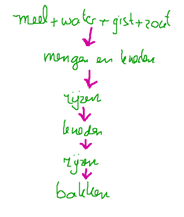 meel+water+gist+zout
mengen en kneden
rijzen
kneden
rijzen
bakken